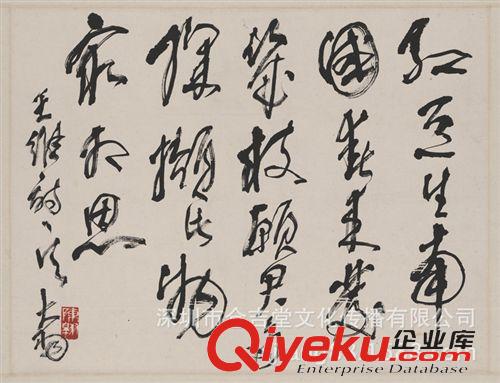 红豆生南
國春来發
幾枝願君多
採撷此物
最相思
王维诗 大羽
深圳市合吉堂文化传播有限公司
Qiyeku.com 企业库
Enterprise Database